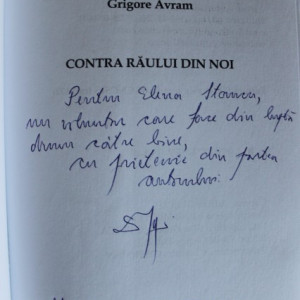 Grigore Avram
CONTRA RĂULUI DIN NOI
Pentru Elena Stancu,
un voluntar care face din luptă
drumu către bine,
cu prietenie din partea
autorului.